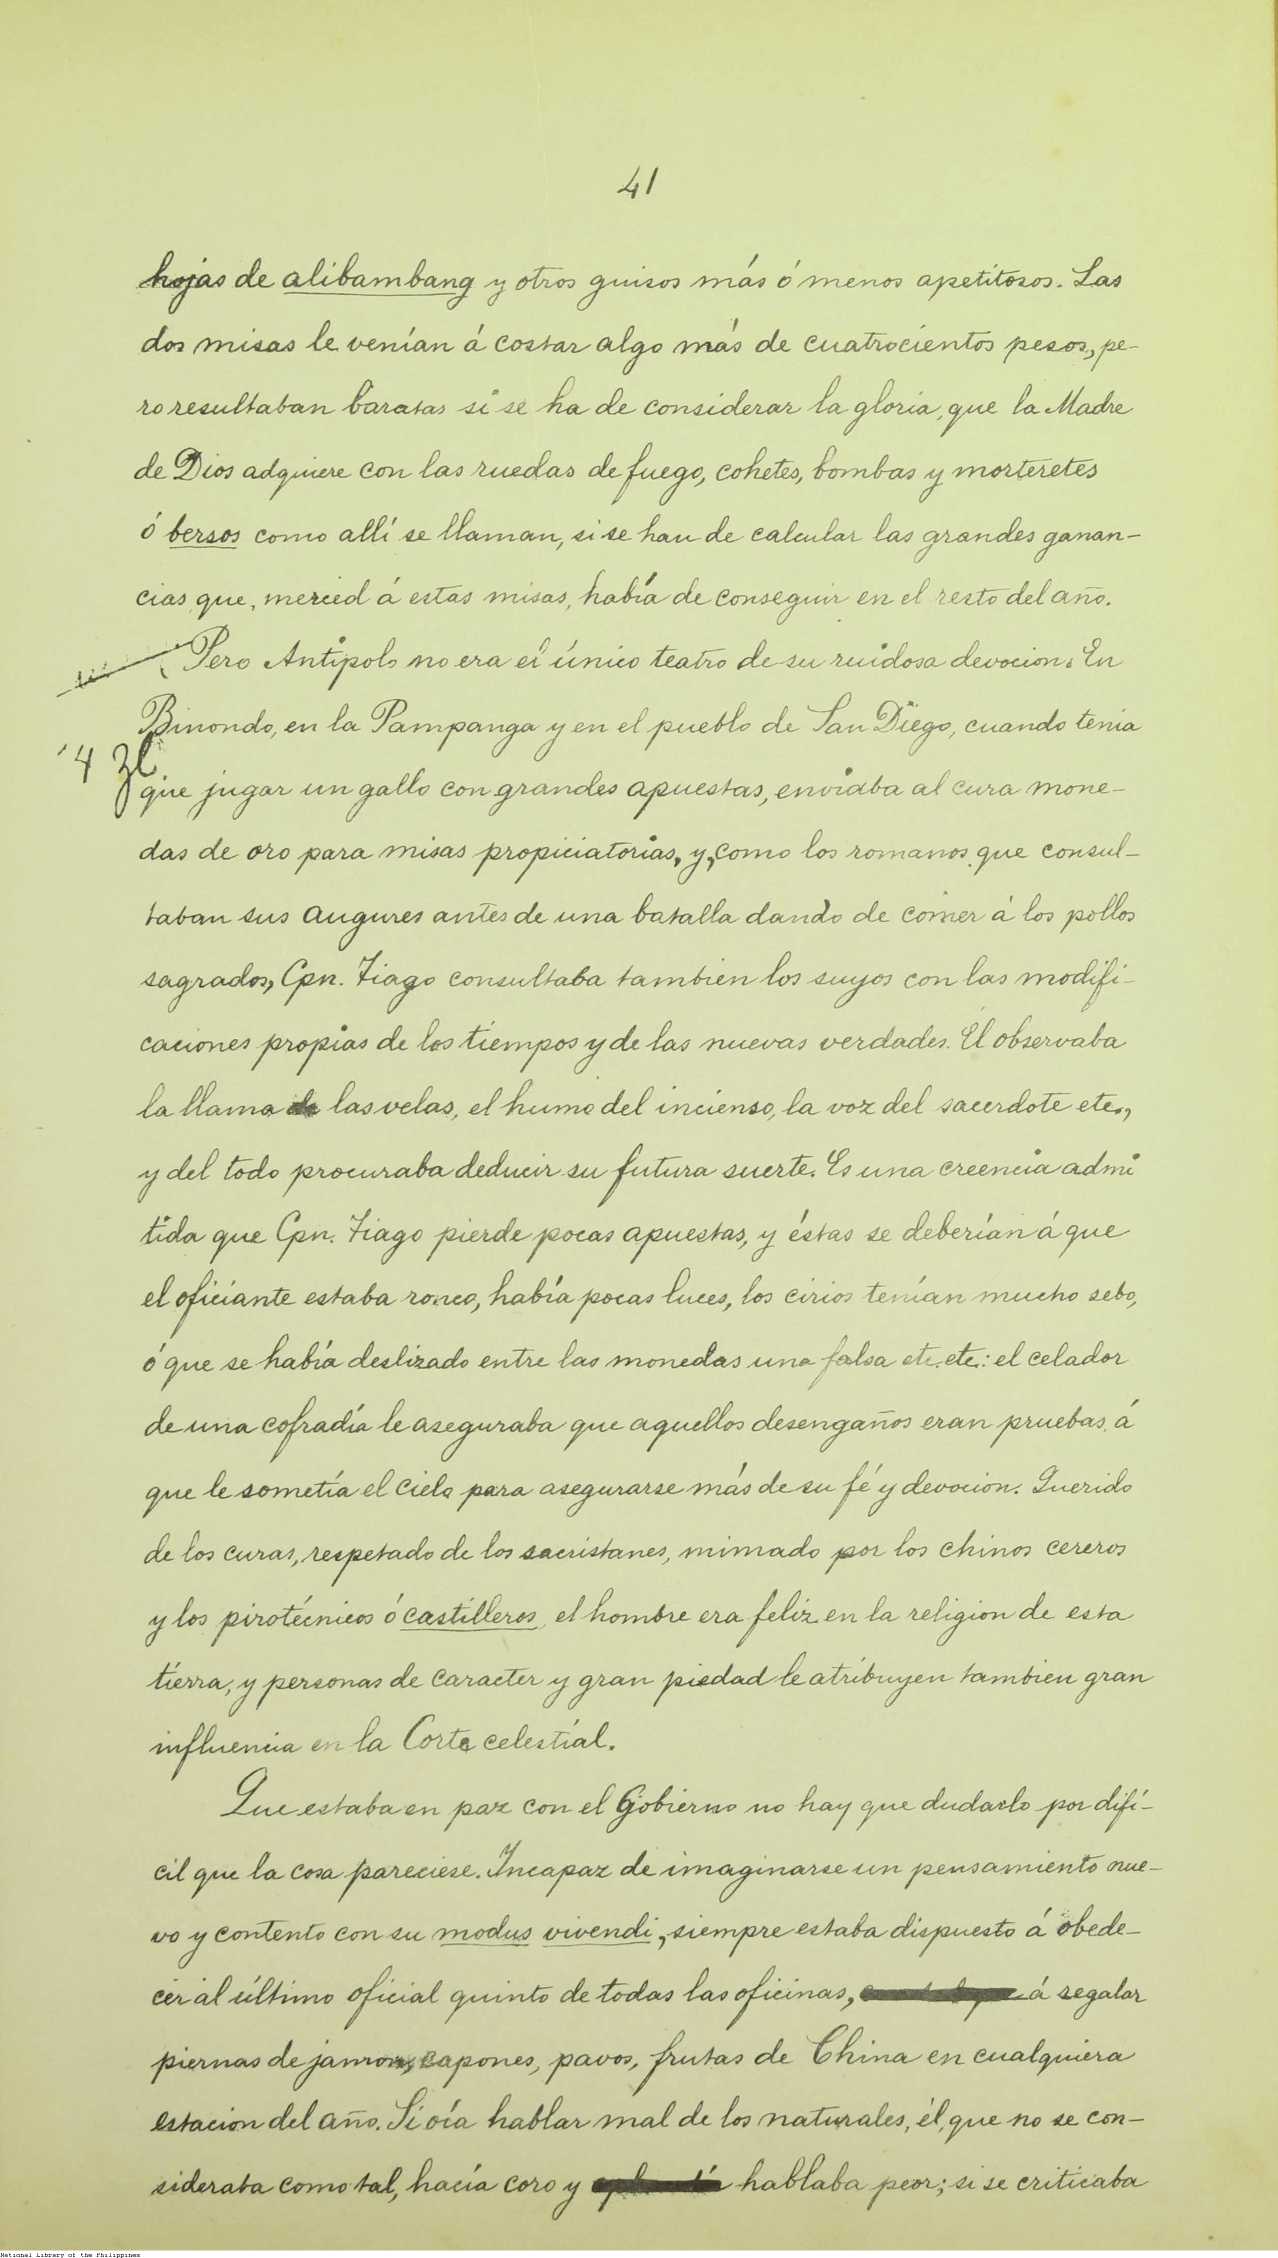 41
hojas de alibambang y otros guisos más ó menos apetitosos. Las
dos misas le venían á costar algo más de cuatrocientos pesos, pe-
ro resultaban baratas si se ha de considerar la gloria, que la Madre
de Dios adquiere con las ruedas de fuego, cohetes, bombas y morteretes
ó bersos como allí se llaman, si se han de calcular las grandes ganan-
cias que, merced á estas misas, había de conseguir en el resto del año.
Pero Antipolo no era el único teatro de su ruidosa devocion. En
Binondo, en la Pampanga y en el pueblo de San Diego, cuando tenia
que jugar un gallo con grandes apuestas, enviaba al cura mone-
das de oro para misas propiciatorias, y, como los romanos que consul-
taban sus augures antes de una batalla dando de comer á los pollos
sagrados, Cpn. Tiago consultaba tambien los suyos con las modifi-
caciones propias de los tiempos y de las nuevas verdades. Él observaba
la llama de las velas, el humo del incienso, la voz del sacerdote etc.,
y del todo procuraba deducir su futura suerte. Es una creencia admi
tida que Cpn. Tiago pierde pocas apuestas, y éstas se deberían á que
el oficiante estaba ronco, había pocas luces, los cirios tenían mucho sebo,
ó que se había deslizado entre las monedas una falsa etc. etc.: el celador
de una cofradía le aseguraba que aquellos desengaños eran pruebas á
que le sometía el cielo para asegurarse más de su fé y devocion. Querido
de los curas, respetado de los sacristanes, mimado por los chinos cereros
y los pirotécnicos ó castilleros, el hombre era feliz en la religion de esta
tierra, y personas de caracter y gran piedad le atribuyen tambien gran
influencia en la Corte celestial.
Que estaba en paz con el Gobierno no hay que dudarlo por difí-
cil que la cosa pareciese. Incapaz de imaginarse un pensamiento nue-
vo y contento con su modus vivendi, siempre estaba dispuesto á obede-
cer al último oficial quinto de todas las oficinas, á regalar
piernas de jamon, capones, pavos, frutas de China en cualquiera
estacion del año. Si oía hablar mal de los naturales, él, que no se con-
sideraba como tal, hacía coro y hablaba peor; si se criticaba
National Library of the Philippines